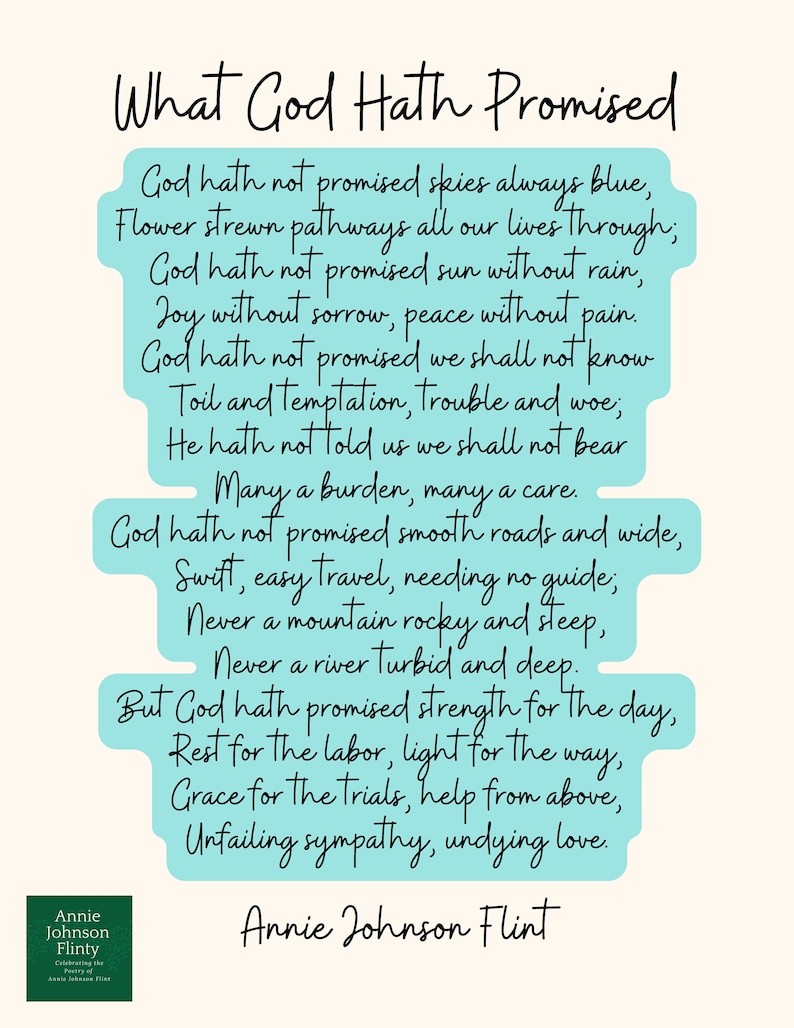 What God Hath Promised
God hath not promised skies always blue,
Flower strewn pathways all our lives through;
God hath not promised sun without rain,
Joy without sorrow, peace without pain.
God hath not promised we shall not know
Toil and temptation, trouble and woe;
He hath not told us we shall not bear
Many a burden, many a care.
God hath not promised smooth roads and wide,
Swift, easy travel, needing no guide;
Never a mountain rocky and steep,
Never a river turbid and deep.
But God hath promised strength for the day,
Rest for the labor, light for the way,
Grace for the trials, help from above,
Unfailing sympathy, undying love.
Annie Johnson Flint
Annie
Johnson
Flinty
Celebrating the
Poetry of
Annie Johnson Flint